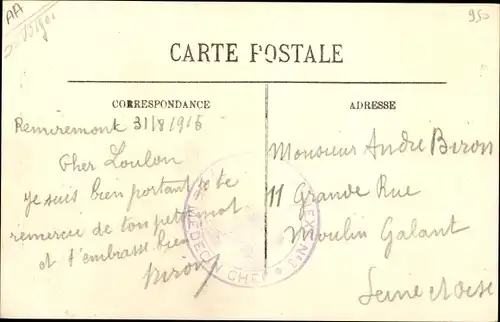 AA
950
CARTE POSTALE
CORRESPONDANCE
ADRESSE
Remiremont 31/8/915
Cher Loulou
je suis bien portant je te
remercie de ton petit mot
et t'embrasse bien
Biron
Monsieur André Biron
11 Grande Rue
Moulin Galant
Seine et Oise
MEDECIN CHEF